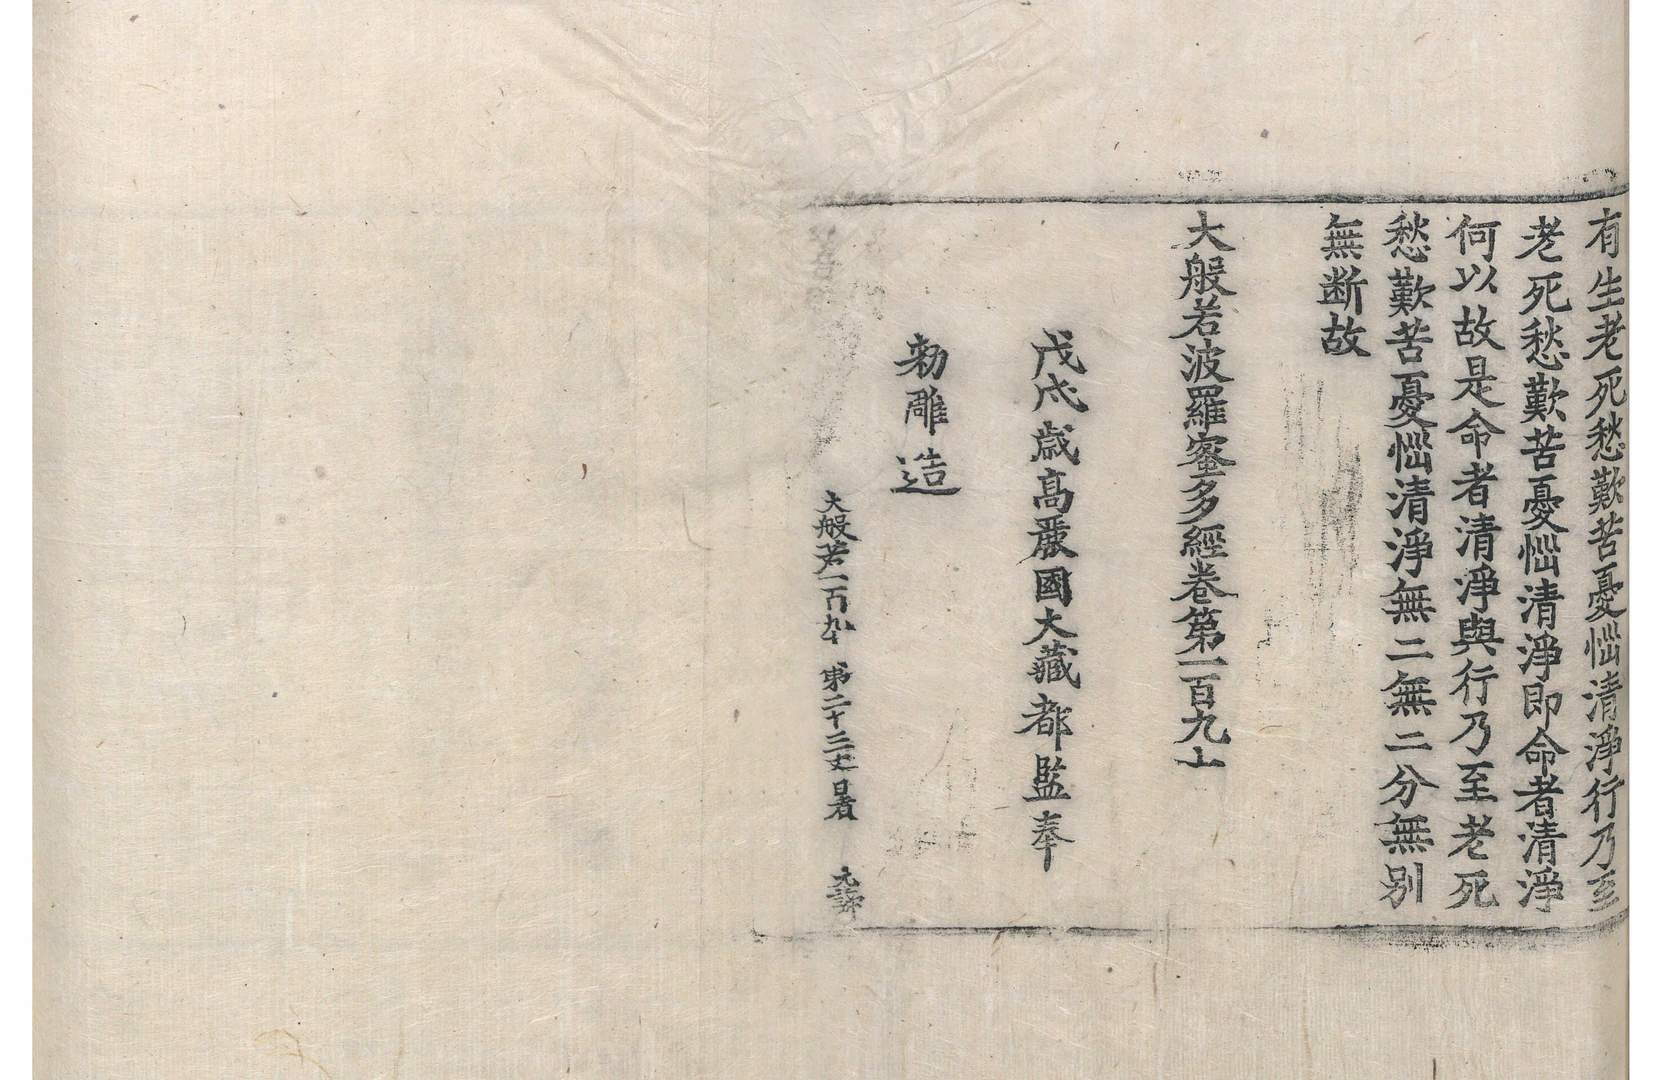 有生老死愁歎苦憂惱清淨行乃至
老死愁歎苦憂惱清淨即命者清淨
何以故是命者清淨與行乃至老死
愁歎苦憂惱清淨無二無二分無別
無断故
大般若波羅蜜多經卷第一百九十
戊戌歲高麗國大藏都監奉
勅雕造
大般若一百九十 第二十三丈 日者